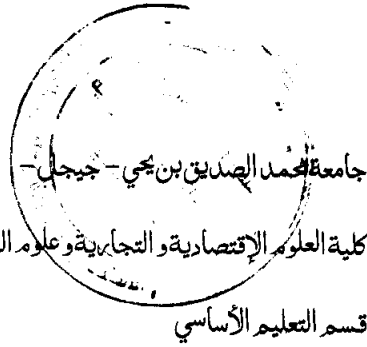 جامعة محمد الصديق بن يحي - جيجل -
كلية العلوم الإقتصادية و التجارية و علوم ال
قسم التعليم الأساسي